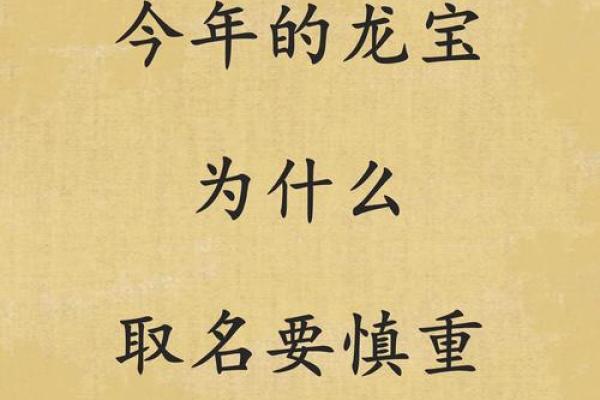 今年的龙宝
为什么
取名要慎重